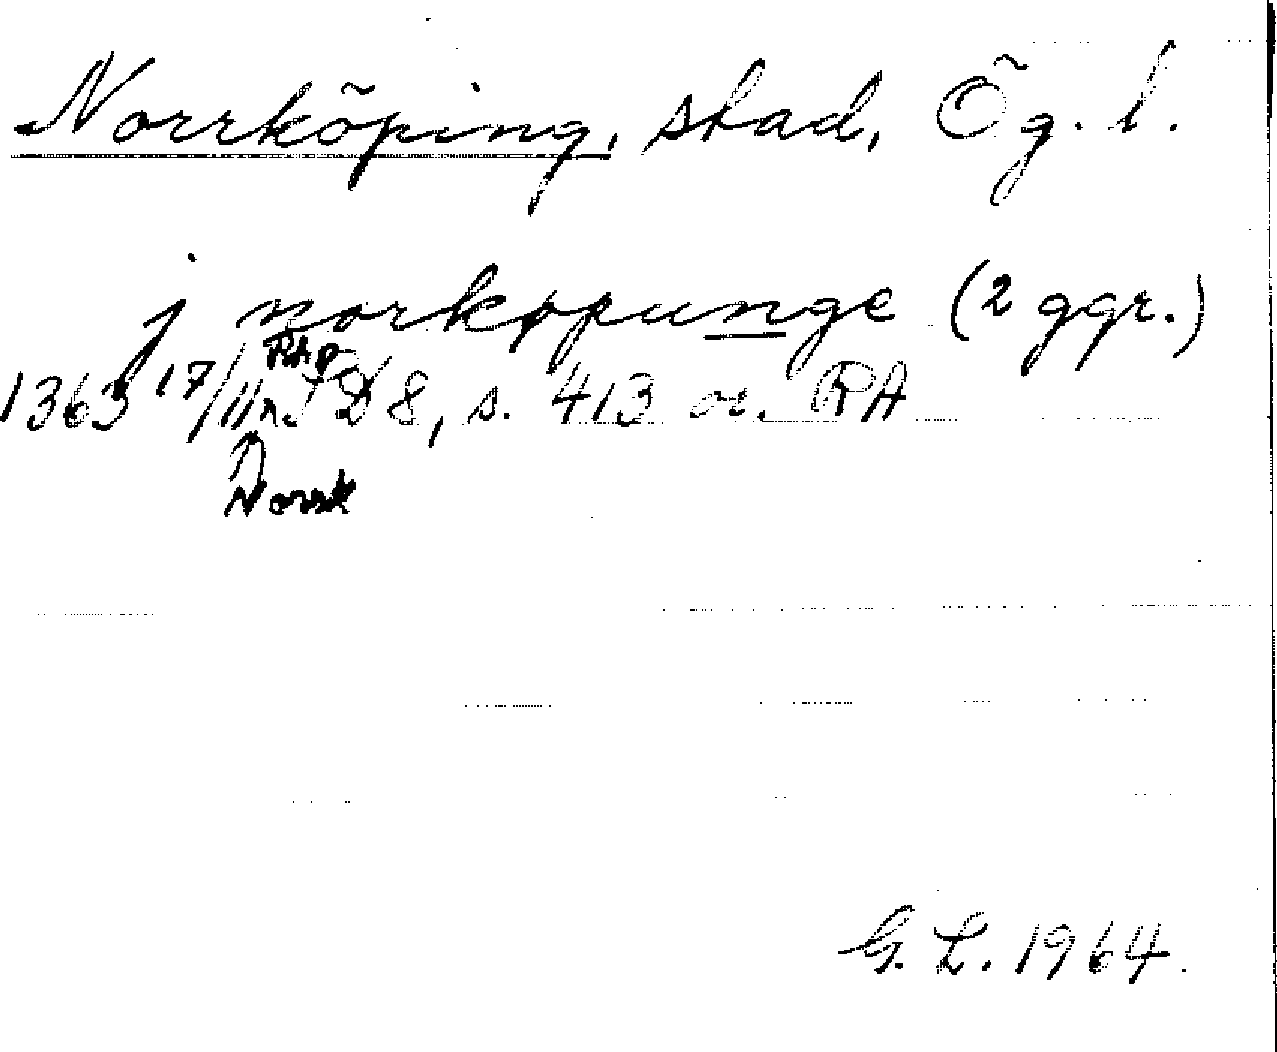 Norrköping, stad, Ög. l.
j norkøpunge (2 ggr.)
RAp
1363 17/11 D 8, s. 413 or. RA
Norsk
G. L. 1964.